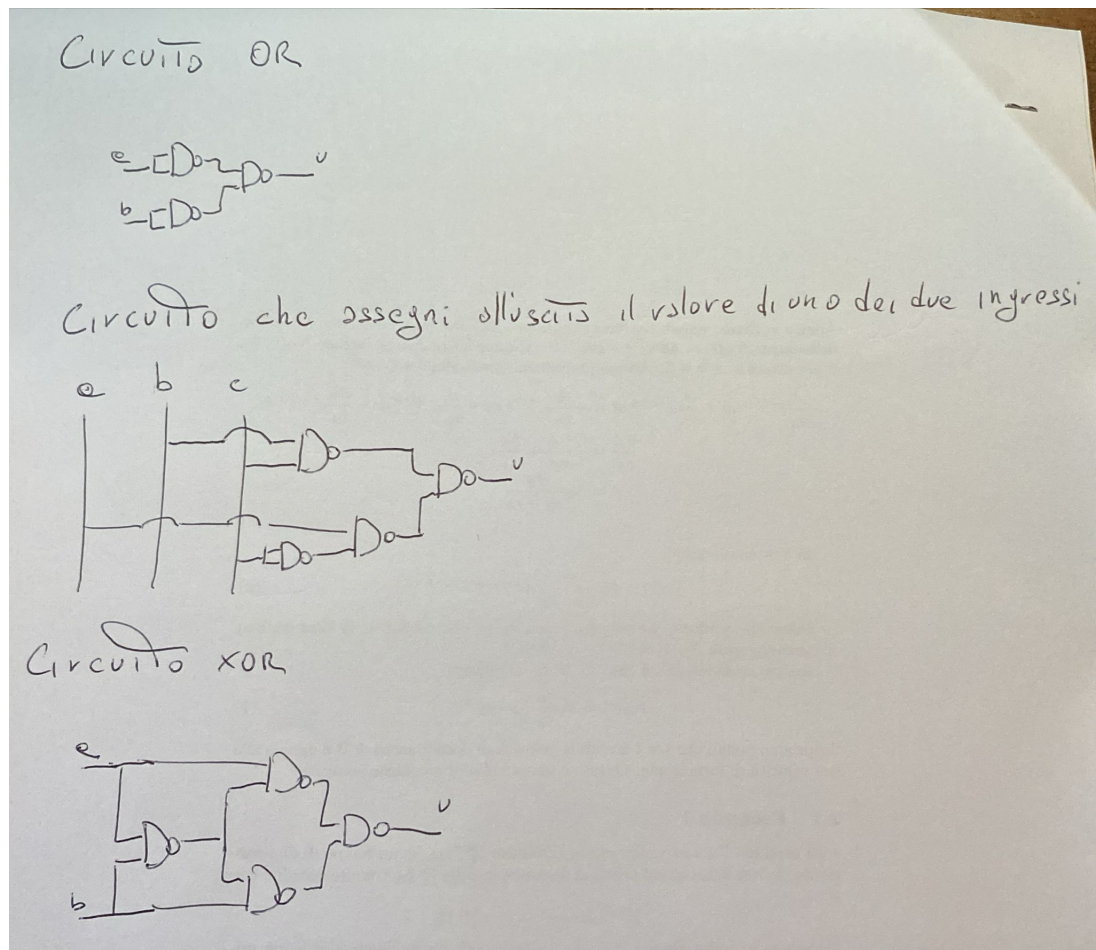 Circuito OR
a
u
b
Circuito che assegni all'uscita il valore di uno dei due ingressi
a b c
u
Circuito XOR
a
u
b